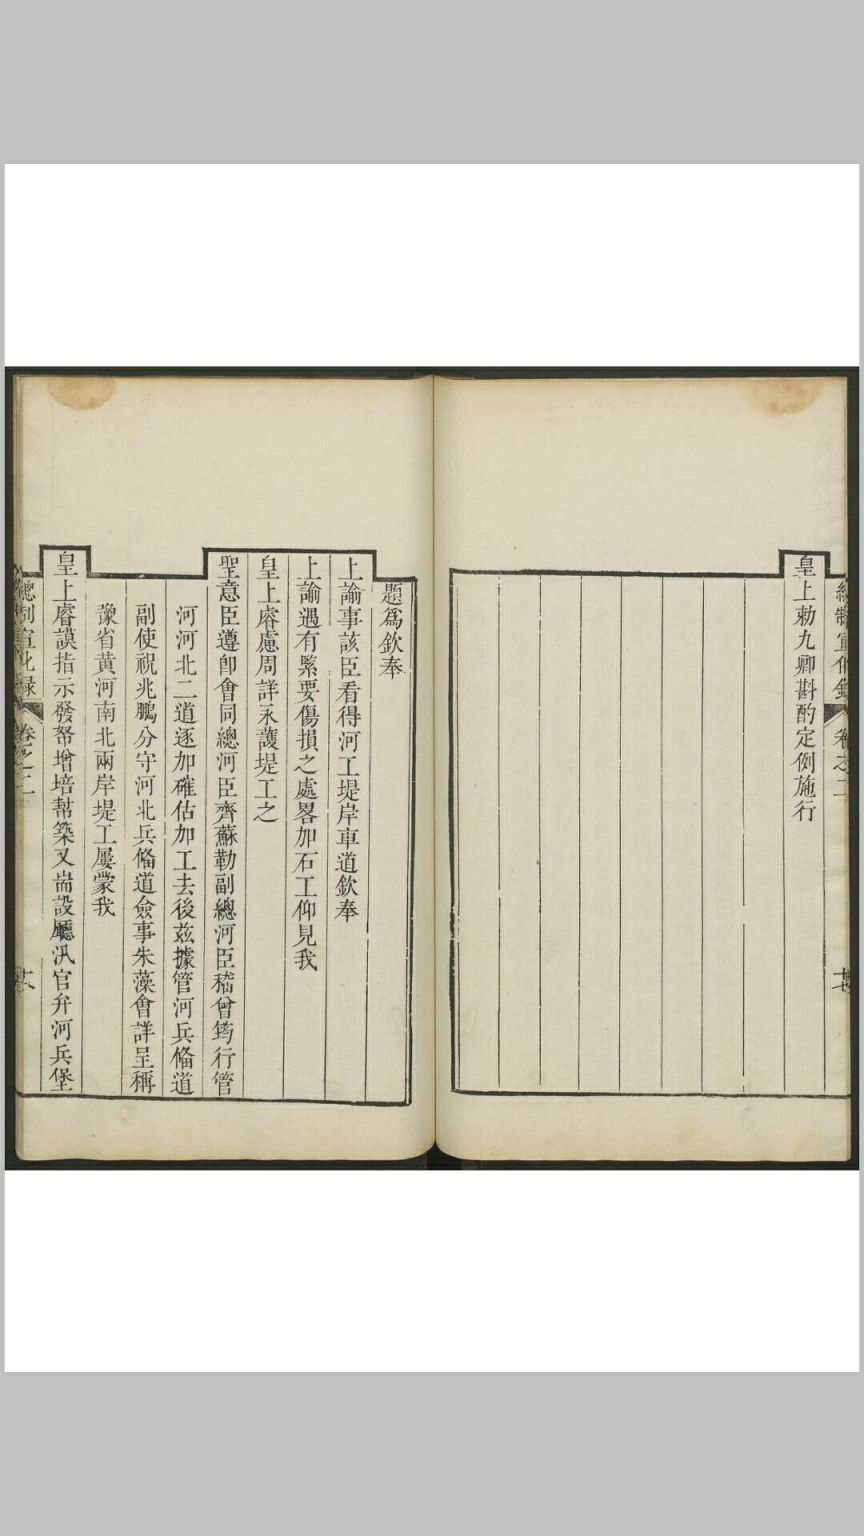 皇上勅九卿斟酌定例施行
題爲欽奉
上諭事該臣看得河工堤岸車道欽奉
上諭遇有緊要傷損之處畧加石工仰見我
皇上睿慮周詳永護堤工之
聖意臣遵卽會同總河臣齊蘇勒副總河臣嵇曾筠行管
河河北二道逐加確估加工去後玆據管河兵備道
副使祝兆鵬分守河北兵備道僉事朱藻會詳呈稱
豫省黄河南北兩岸堤工屢蒙我
皇上睿謨指示發帑增培幇築又耑設廳汛官弁河兵堡
總制宣化錄 卷之二